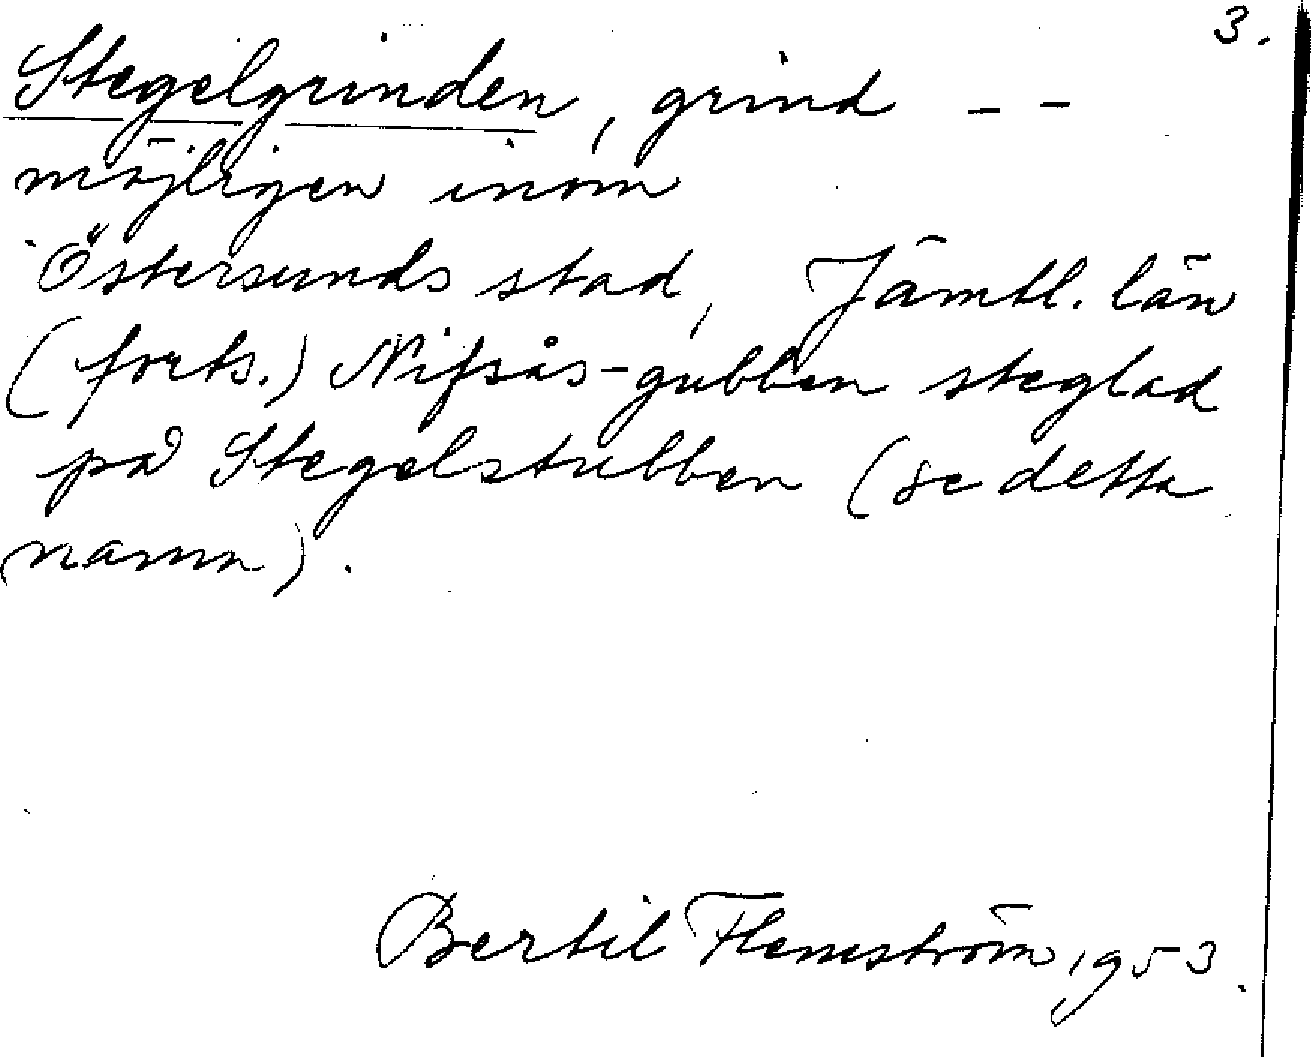 3.
Stegelgrinden, grind - -
möjligen inom
Östersunds stad, Jämtl. län
(forts.) Nifsås-gubben steglad
på Stegelstubben (se detta
namn).
Bertil Flemström, 1953.